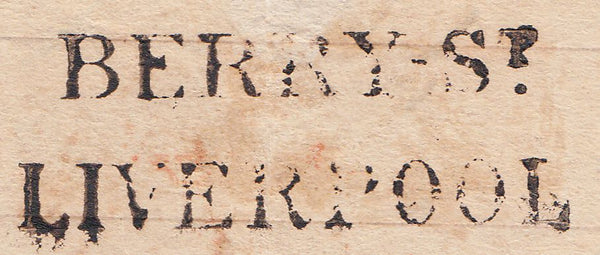 BERRY-ST.
LIVERPOOL